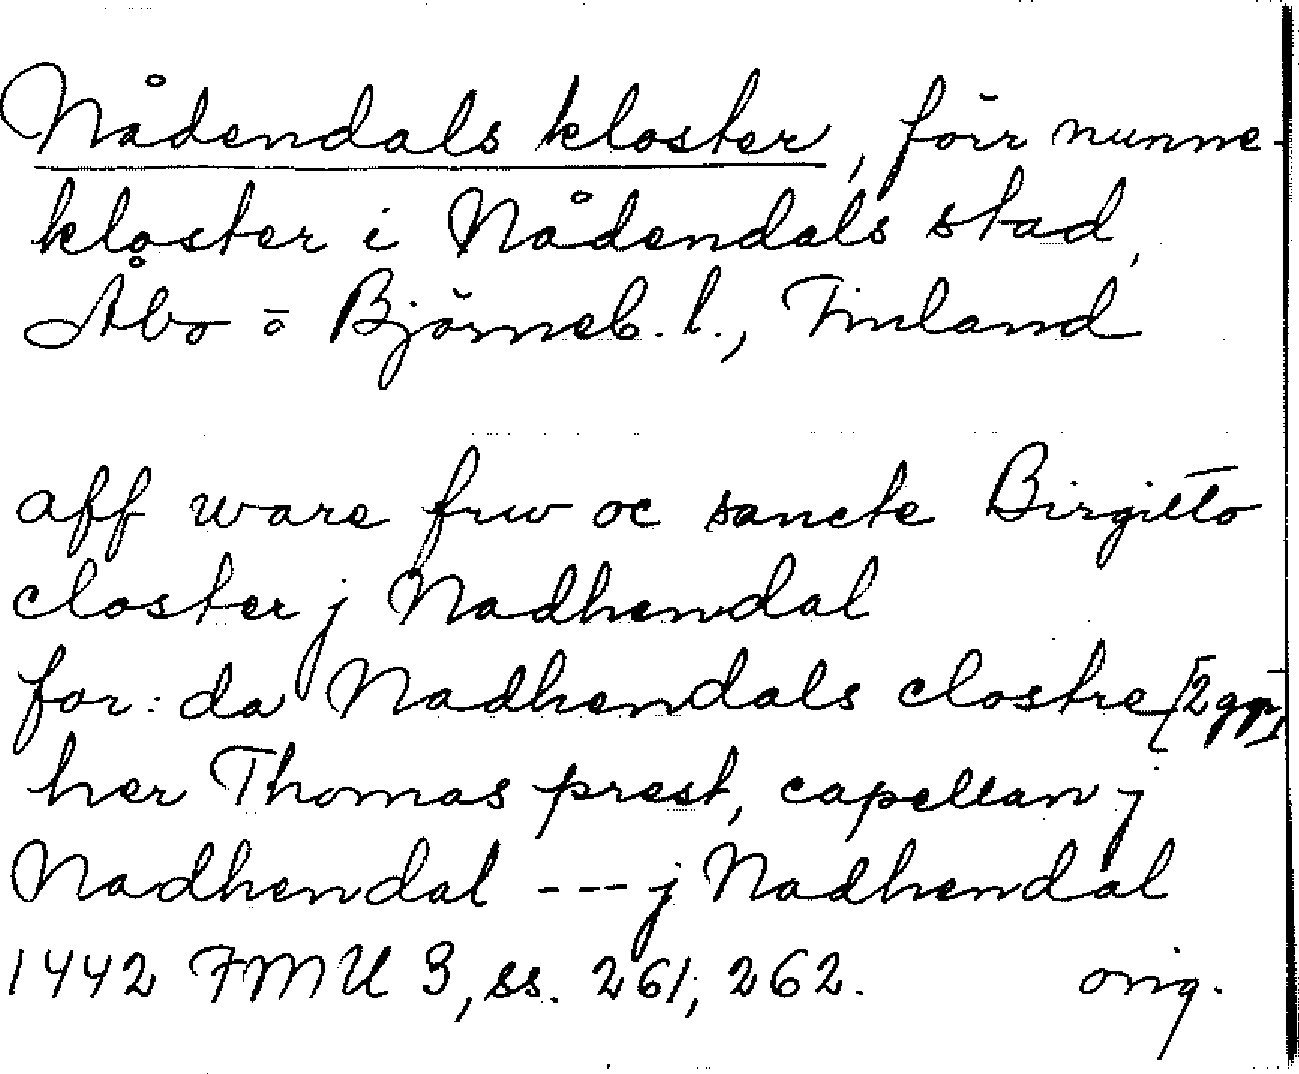 Nådendals kloster, förr nunne-
kloster i Nådendals stad,
Åbo o Björneb. l., Finland
aff ware frw oc sancte Birgitto
closter j Nadhendal
for: da Nadhendals clostre [2 ggr]
her Thomas prest, capellan j
Nadhendal --- j Nadhendal
1442 FMU 3, ss. 261, 262. orig.